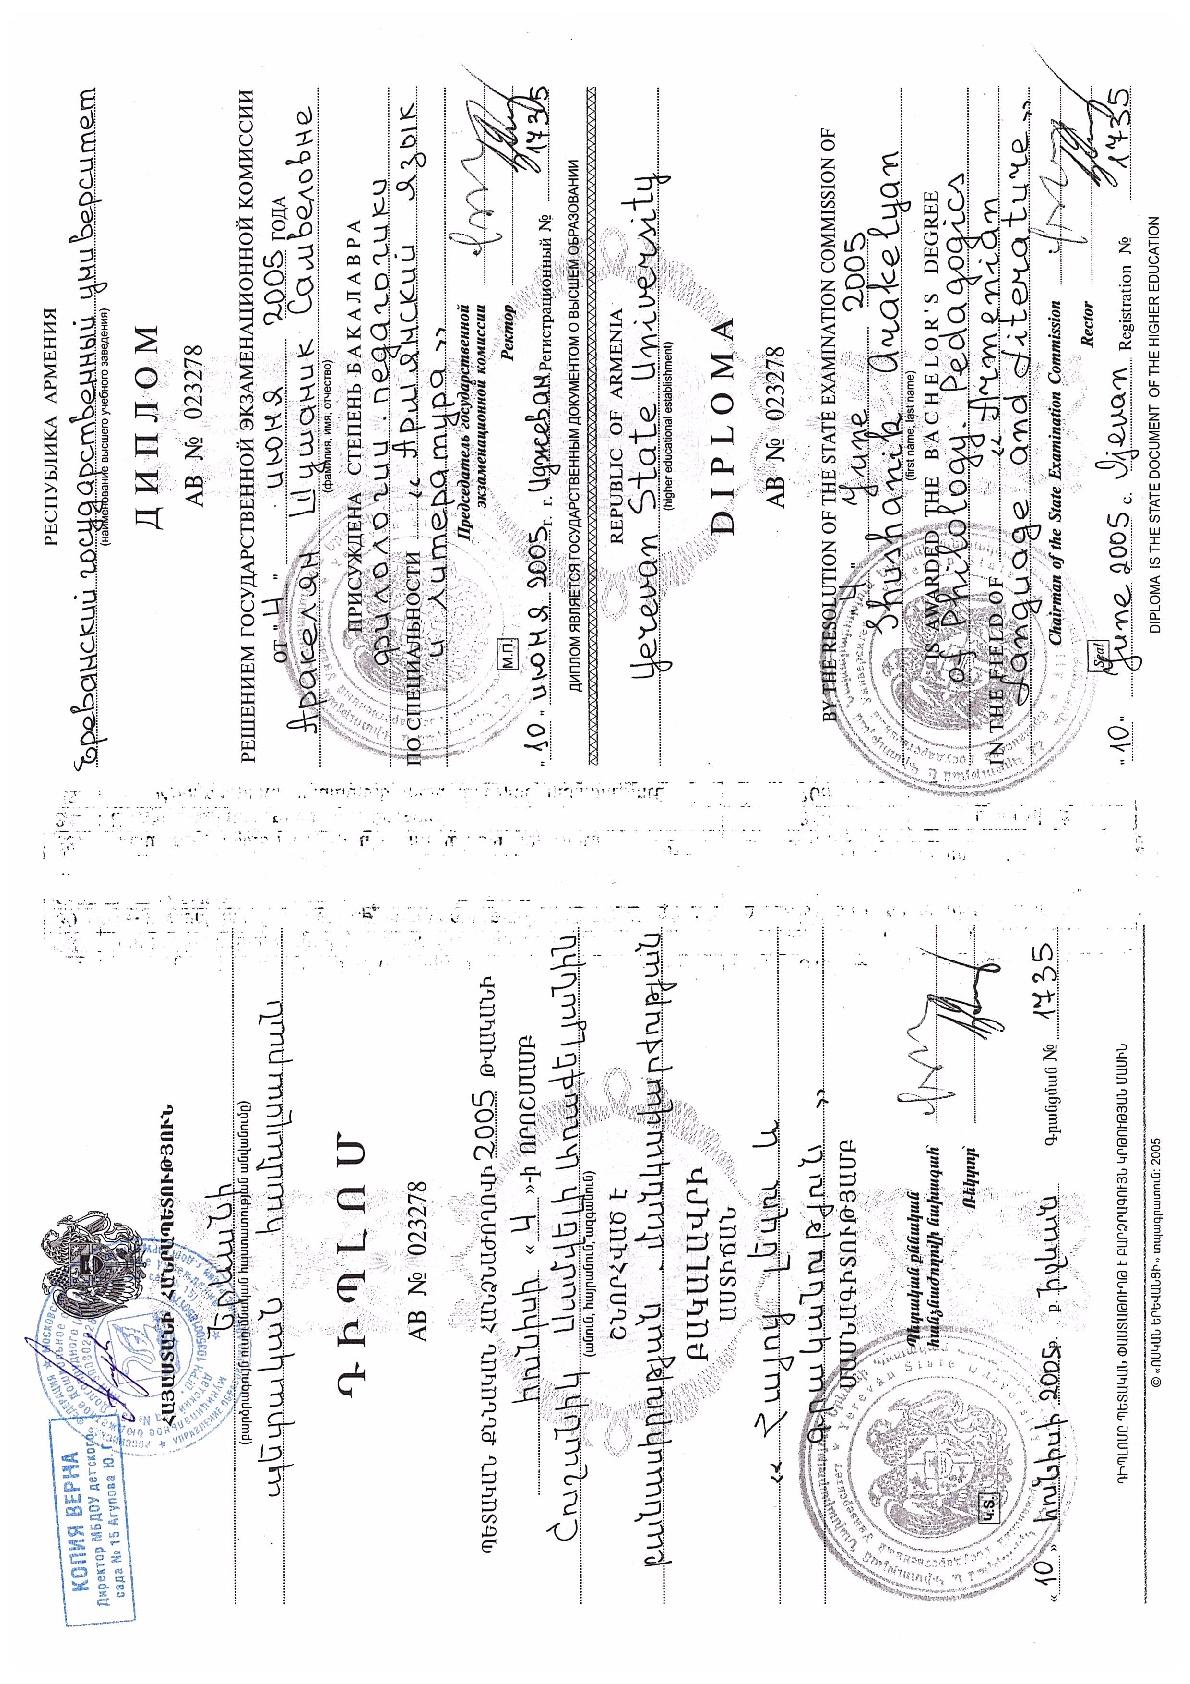 КОПИЯ ВЕРНА
Директор МБДОУ детского
сада № 15 Агупова Ю. Г.
ՀԱՅԱՍՏԱՆԻ ՀԱՆՐԱՊԵՏՈՒԹՅՈՒՆ
Երևանի
պետական համալսարան
ԴԻՊԼՈՄ
AB № 023278
ՊԵՏԱԿԱՆ ՔՆՆԱԿԱՆ ՀԱՆՁՆԱԺՈՂՈՎԻ 2005 ԹՎԱԿԱՆԻ
հունիսի « 4 »-Ի ՈՐՈՇՄԱՄԲ
Շուշանիկ Սամվելի Առաքելյանին
(անուն, հայրանուն, ազգանուն)
ՇՆՈՐՀՎԱԾ Է
բանասիրության. մանկավարժության
ԲԱԿԱԼԱՎՐԻ
ԱՍՏԻՃԱՆ
« Հայոց լեզու և
գրականություն »
ՄԱՍՆԱԳԻՏՈՒԹՅԱՄԲ
Պետական քննական
հանձնաժողովի նախագահ
Ռեկտոր
Կ.Տ.
« 10 » հունիսի 2005թ. ք. Իջևան Գրանցման № 1735
ԴԻՊԼՈՄԸ ՊԵՏԱԿԱՆ ՓԱՍՏԱԹՈՒՂԹ Է ԲԱՐՁՐԱԳՈՒՅՆ ԿՐԹՈՒԹՅԱՆ ՄԱՍԻՆ
РЕСПУБЛИКА АРМЕНИЯ
Ереванский государственный университет
(наименование высшего учебного заведения)
ДИПЛОМ
AB № 023278
РЕШЕНИЕМ ГОСУДАРСТВЕННОЙ ЭКЗАМЕНАЦИОННОЙ КОМИССИИ
ОТ "4" июня 2005 ГОДА
Аракелян Шушаник Самвеловне
(фамилия, имя, отчество)
ПРИСУЖДЕНА СТЕПЕНЬ БАКАЛАВРА
филологии. педагогики
ПО СПЕЦИАЛЬНОСТИ « Армянский язык
и литература »
Председатель государственной
экзаменационной комиссии
Ректор
М.П.
"10" июня 2005 г. г. Иджеван Регистрационный № 1735
ДИПЛОМ ЯВЛЯЕТСЯ ГОСУДАРСТВЕННЫМ ДОКУМЕНТОМ О ВЫСШЕМ ОБРАЗОВАНИИ
REPUBLIC OF ARMENIA
Yerevan State University
(higher educational establishment)
DIPLOMA
AB № 023278
BY THE RESOLUTION OF THE STATE EXAMINATION COMMISSION OF
"4" June 2005
Shushanik Arakelyan
(first name, last name)
IS AWARDED THE BACHELOR'S DEGREE
of Philology. Pedagogics
IN THE FIELD OF « Armenian
Language and Literature »
Chairman of the State Examination Commission
Rector
Seal
"10" June 2005 c. Ijevan Registration № 1735
DIPLOMA IS THE STATE DOCUMENT OF THE HIGHER EDUCATION